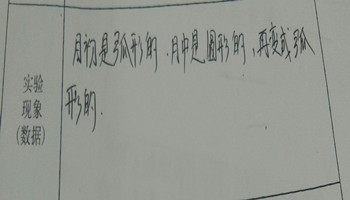 月初是弧形的.月中是圆形的,再变成弧
形的.
实验
现象
(数据)